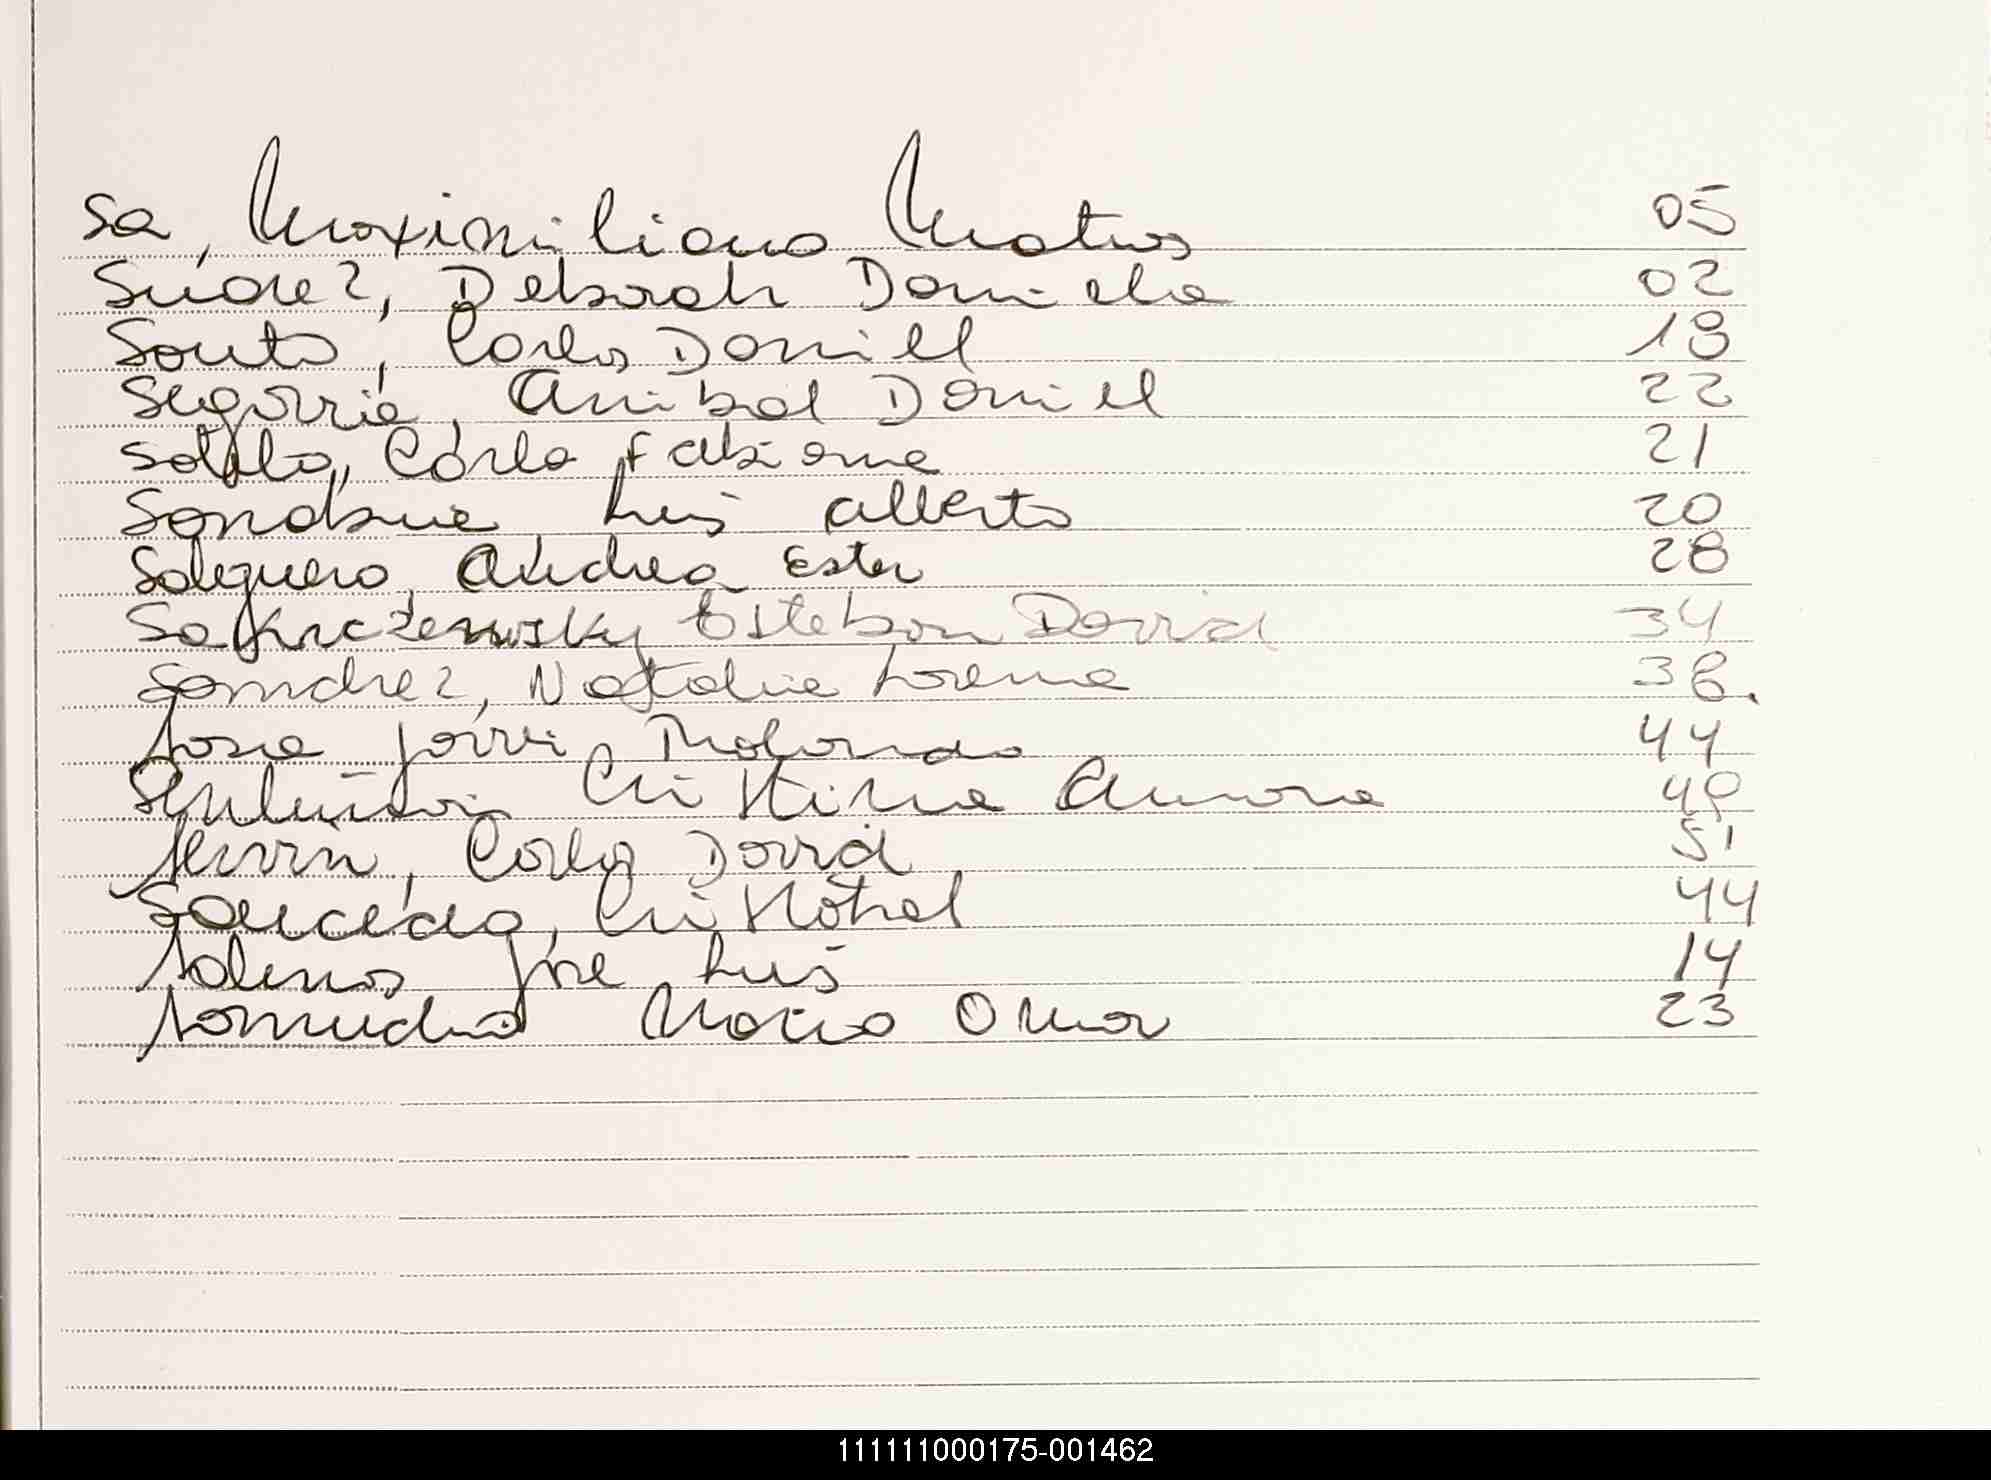 Sa, Maximiliano Matias 05
Suarez, Deborah Daniela 02
Souto, Carlos Daniel 18
Segovia, Anibal Daniel 22
Sotelo, Carla Fabiana 21
Sanabria Luis Alberto 20
Salguero, Andrea Ester 28
Esteban David 34
Sanchez, Natalia Lorena 38.
Sosa Javier Rolando 44
Cristina Aurora 48
Servin, Carlos David 51
Saucedo, Cristobal 44
Salinas Jose Luis 14
Samudio Mario Omar 23
111111000175-001462